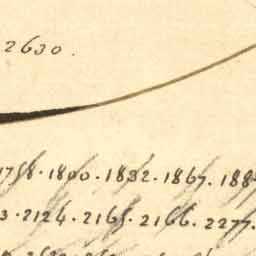 2630.
1758. 1800. 1832. 1867. 188
3. 2124. 2165. 2166. 2277.